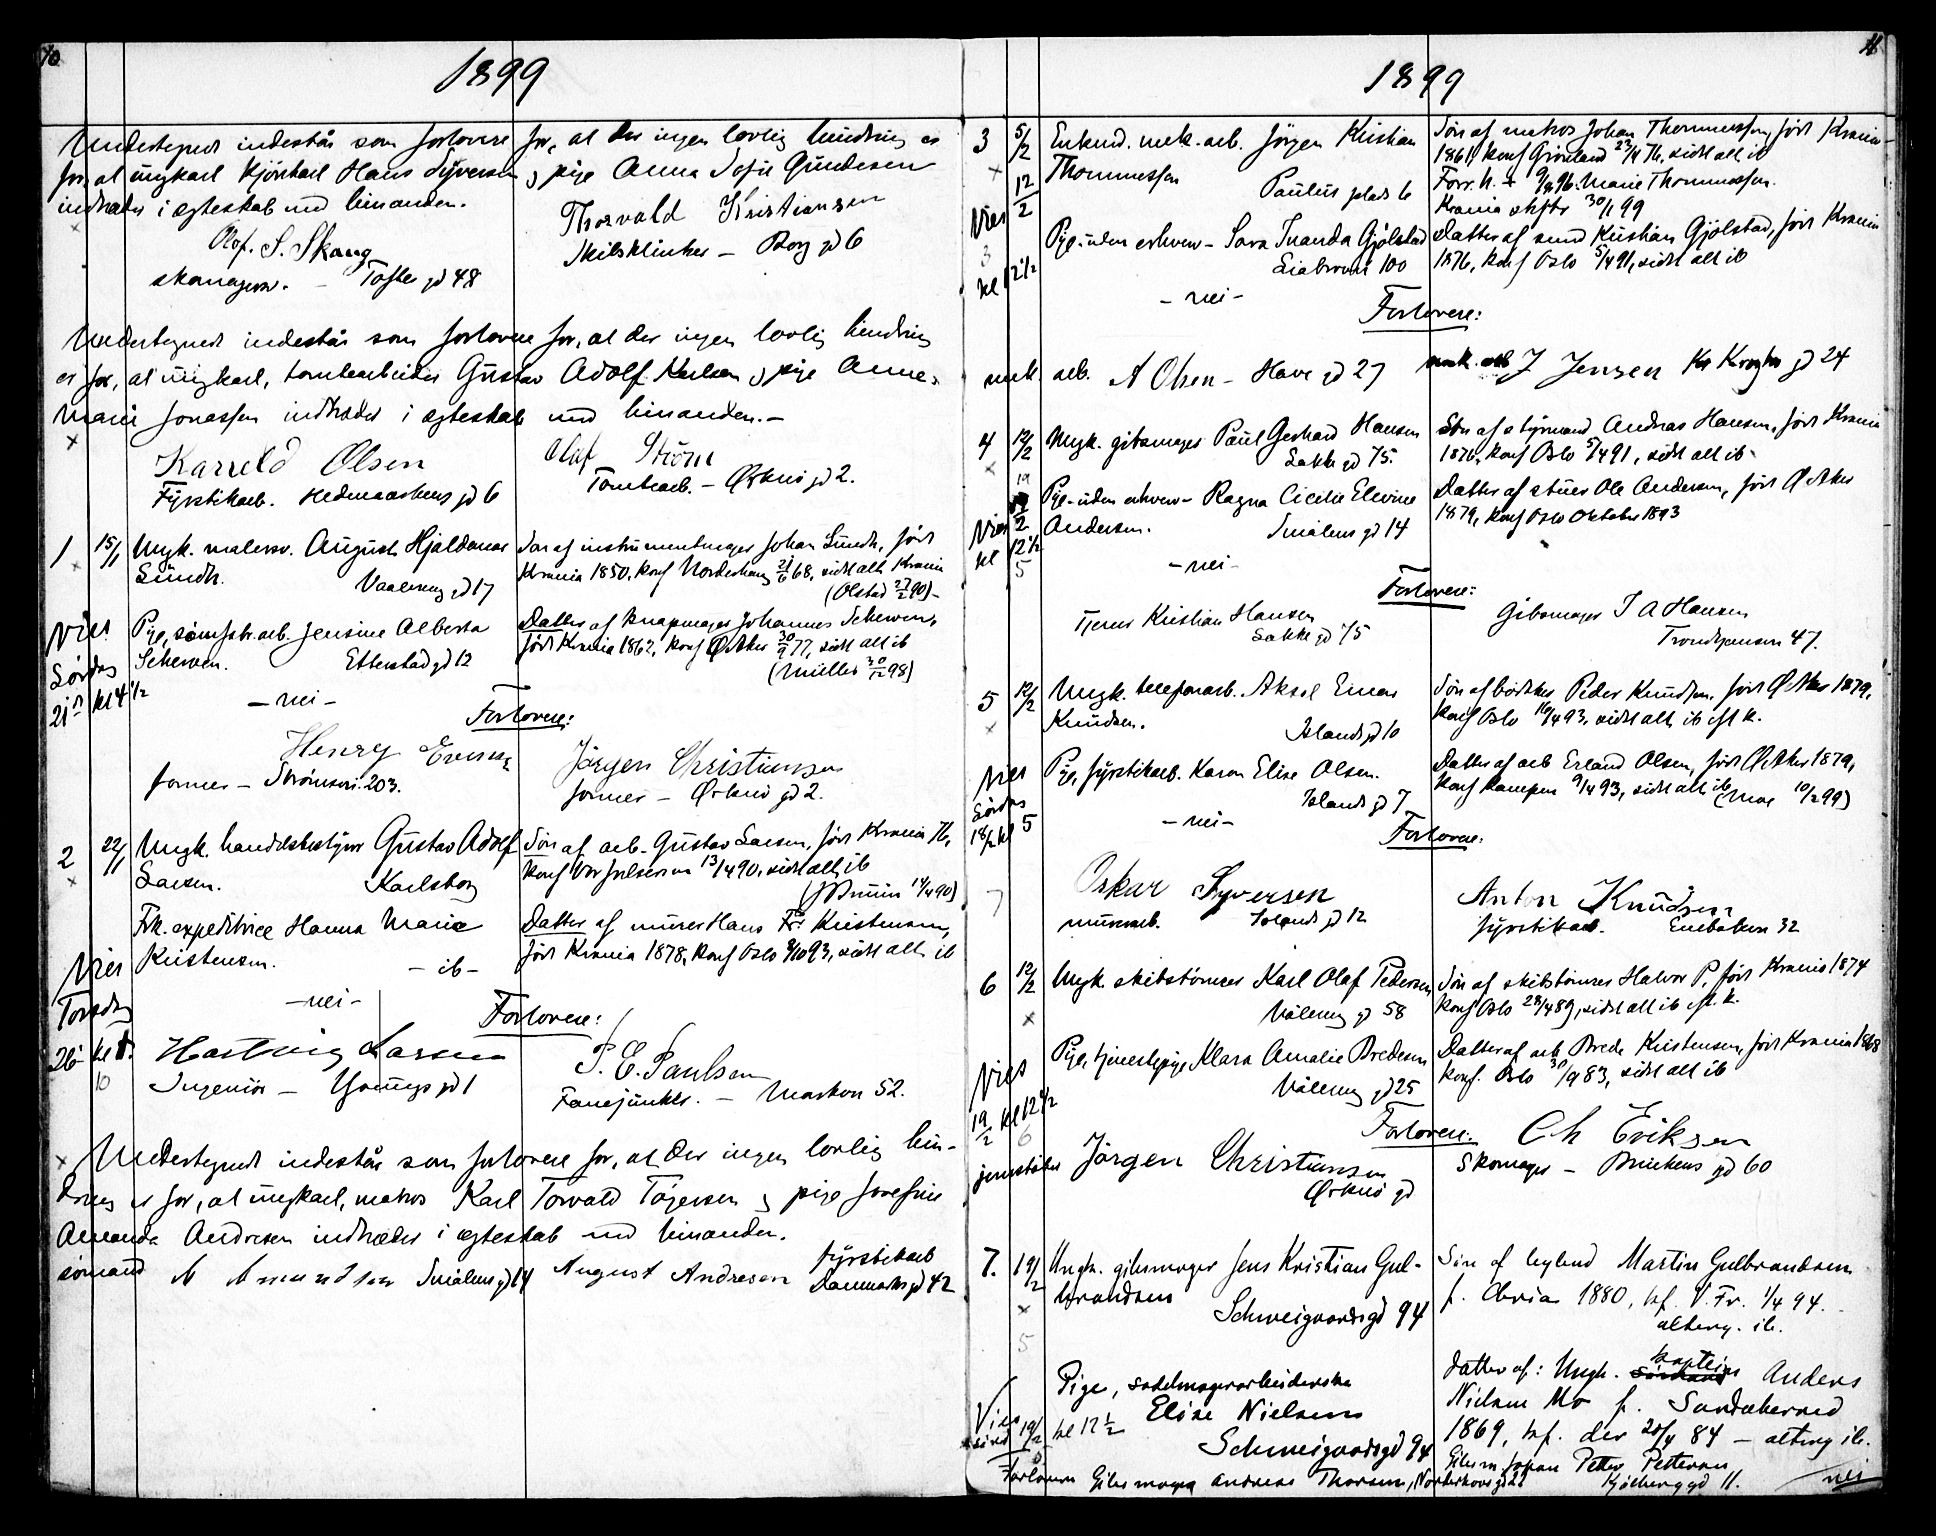 10
1899
Undertegnede indestår som forlovere for, at der ingen lovlig hindring er
for, at ungkarl Hans Syversen og pige Anna Sofie Gundersen
indtræder i ægteskab med hinanden.
Olof. S. Skaug
skomager. – Tofte gd 48
Thorvald Kristiansen
– Borg gd 6
Undertegnede indestår som forlovere for, at der ingen lovlig hindring
er for, at ungkarl, tomtearbeider Gustav Adolf Karlsen og pige Anne
Marie Jonassen indtræder i ægteskab med hinanden.–
Karreld Olsen
Fyrstikarb. Hedmarkens gd 6
Olaf Ström
Tomtearb. – Örknö gd 2.
1 15/1 Ungk. malersv. August Hjaldemar
Sundt. Vaalereng gd 17
Søn af instrumentmager Johan Sundt, født
Krania 1850, konf Norderhaug 21/6 68, sidst alt. Krania
(Olstad 27/2 90)–
Pige, sømfstr.arb. Jensine Alberta
Scherven. Etterstad gd 12
Datter af knapmager Johannes Scherven,
født Krania 1862, konf Ø Aker 30/9 77, sidst alt ib
(Müller 30/12 98)
Vies
Lørdag
21de kl 4 1/2
– nei –
Forlovere:
Henry Evensen
former – Strömsv. 203.
Jörgen Christiansen
former – Örknö gd 2.
2 22/1 Ungk. handelsbestyrer Gustav Adolf
Larsen. Karlsborg
Søn af arb. Gustav Larsen, født Krania 76,
konf Vor frelserem 13/4 90, sidst alt. ib
Frk. expeditrice Hanna Marie
Kristensen. – ib –
Datter af murer Hans Fr. Kristensen,
født Krania 1878, konf Oslo 8/10 93, sidst alt. ib
Vies
Torsdag
26 kl
10
– nei –
Forlovere:
Hartvig Larsen
Ingeniör – Youngs gd 1
P. E. Paulsen
Fanejunker. – Markv 52.
Undertegnede indestår som forlovere for, at der ingen lovlig hin-
dring er for, at ungkarl, matros Karl Torvald Törgersen og pige Josefine
Amanda Andresen indtræder i ægteskab med hinanden.
sömand A Amundsen Smålens gd 14
August Andresen fyrstikarb
Danmarks gd 42
11
1899
3 5/2 Enkemd. mek. arb. Jörgen Kristian
Thommessen Paulus plads 6
Søn af matros Johan Thommessen, født Krania
1861, konf Grönland 23/4 76, sidst alt ib
Forr. h. + 9/8 96. Marie Thommessen.
Krania skifte 30/1 99
12/2
Vies
3
kl 12 1/2
Pige – uden erhverv – Sara Tranda Gjölstad
Liabroveien 100
Datter af smed Kristian Gjölstad, født Krania
1876, konf Oslo 5/4 91, sidst alt ib
– nei –
Forlovere:
mek. arb. A Olsen – Have gd 27
mek. arb J Jensen Kr Kroghs gd 24
4 12/2 Ungk. gibsmager Paul Gerhard Hansen
Lakke gd 75.
Søn af styrmand Andreas Hansen, født Krania
1876, konf Oslo 5/4 91, sidst alt ib
19/2
Vies
kl 12 1/2
5
Pige – uden erhverv – Ragna Cicilie Elevine
Andersen. Smålens gd 14
Datter af stuer Ole Andersen, født Ø Aker
1879, konf Oslo Oktober 1893
– nei –
Forlovere:
Tjener Kristian Hansen
Lakke gd 75
Gibsmager J A Hansen
Trondhjemsv 47.
5 12/2 Ungk. telefonarb. Aksel Einar
Knudsen. Islands gd 10
Søn af bödker Peder Knudsen, født Ø Aker 1879,
konf Oslo 16/4 93, sidst alt ib ift k.
Vies
Lørdag
18/2 kl 5
Pige, fyrstikarb. Karen Elise Olsen.
Islands gd 7
Datter af arb Erland Olsen, født Ø Aker 1879,
konf Kampen 9/4 93, sidst alt ib (Moe 10/2 99)
– nei –
Forlovere:
7
Oskar Syversen
murarb. Islands gd 12
Anton Knudsen
fyrstikarb. Enebakv 32
6 12/2 Ungk. skibstömrer Karl Olaf Pedersen
Vålereng gd 58
Søn af skibstömrer Halvor P, født Krania 1874
konf Oslo 28/4 89, sidst alt ib ift. k.
Pige, tjenestepige Klara Amalie Bredesen
Vålereng gd 25
Datter af arb Brede Kristensen, født Krania 1868
konf. Oslo 30/9 83, sidst alt ib
Vies
19/2 kl 12 1/2
6
Forlovere:
jernstöber Jörgen Christiansen
Örknö gd
Ch Eriksen
Skomager – gd 60
7. 19/2 Ungk. gibsmager Jens Kristian Gul-
brandsen
Schweigaardsgd 94
Søn af Martin Gulbrandsen
f. Chria 1880, kf. V. Fr. 1/4 94.
altberg. ib.
5
Pige, sadelmagerarbeiderske
kl 12 1/2 Elise Nielsen
Schweigaardsgd 94
datter af: Ungk. kaptein Anders
Nielsen Mo f. Sandeherred
1869, kf. der 20/4 84 – altberg ib.
Vies
19/2
Forlovere Gibsmager Andreas Thorsen,
Gibsm. Johan Petter Pettersen
Kjölberggd 11. nei